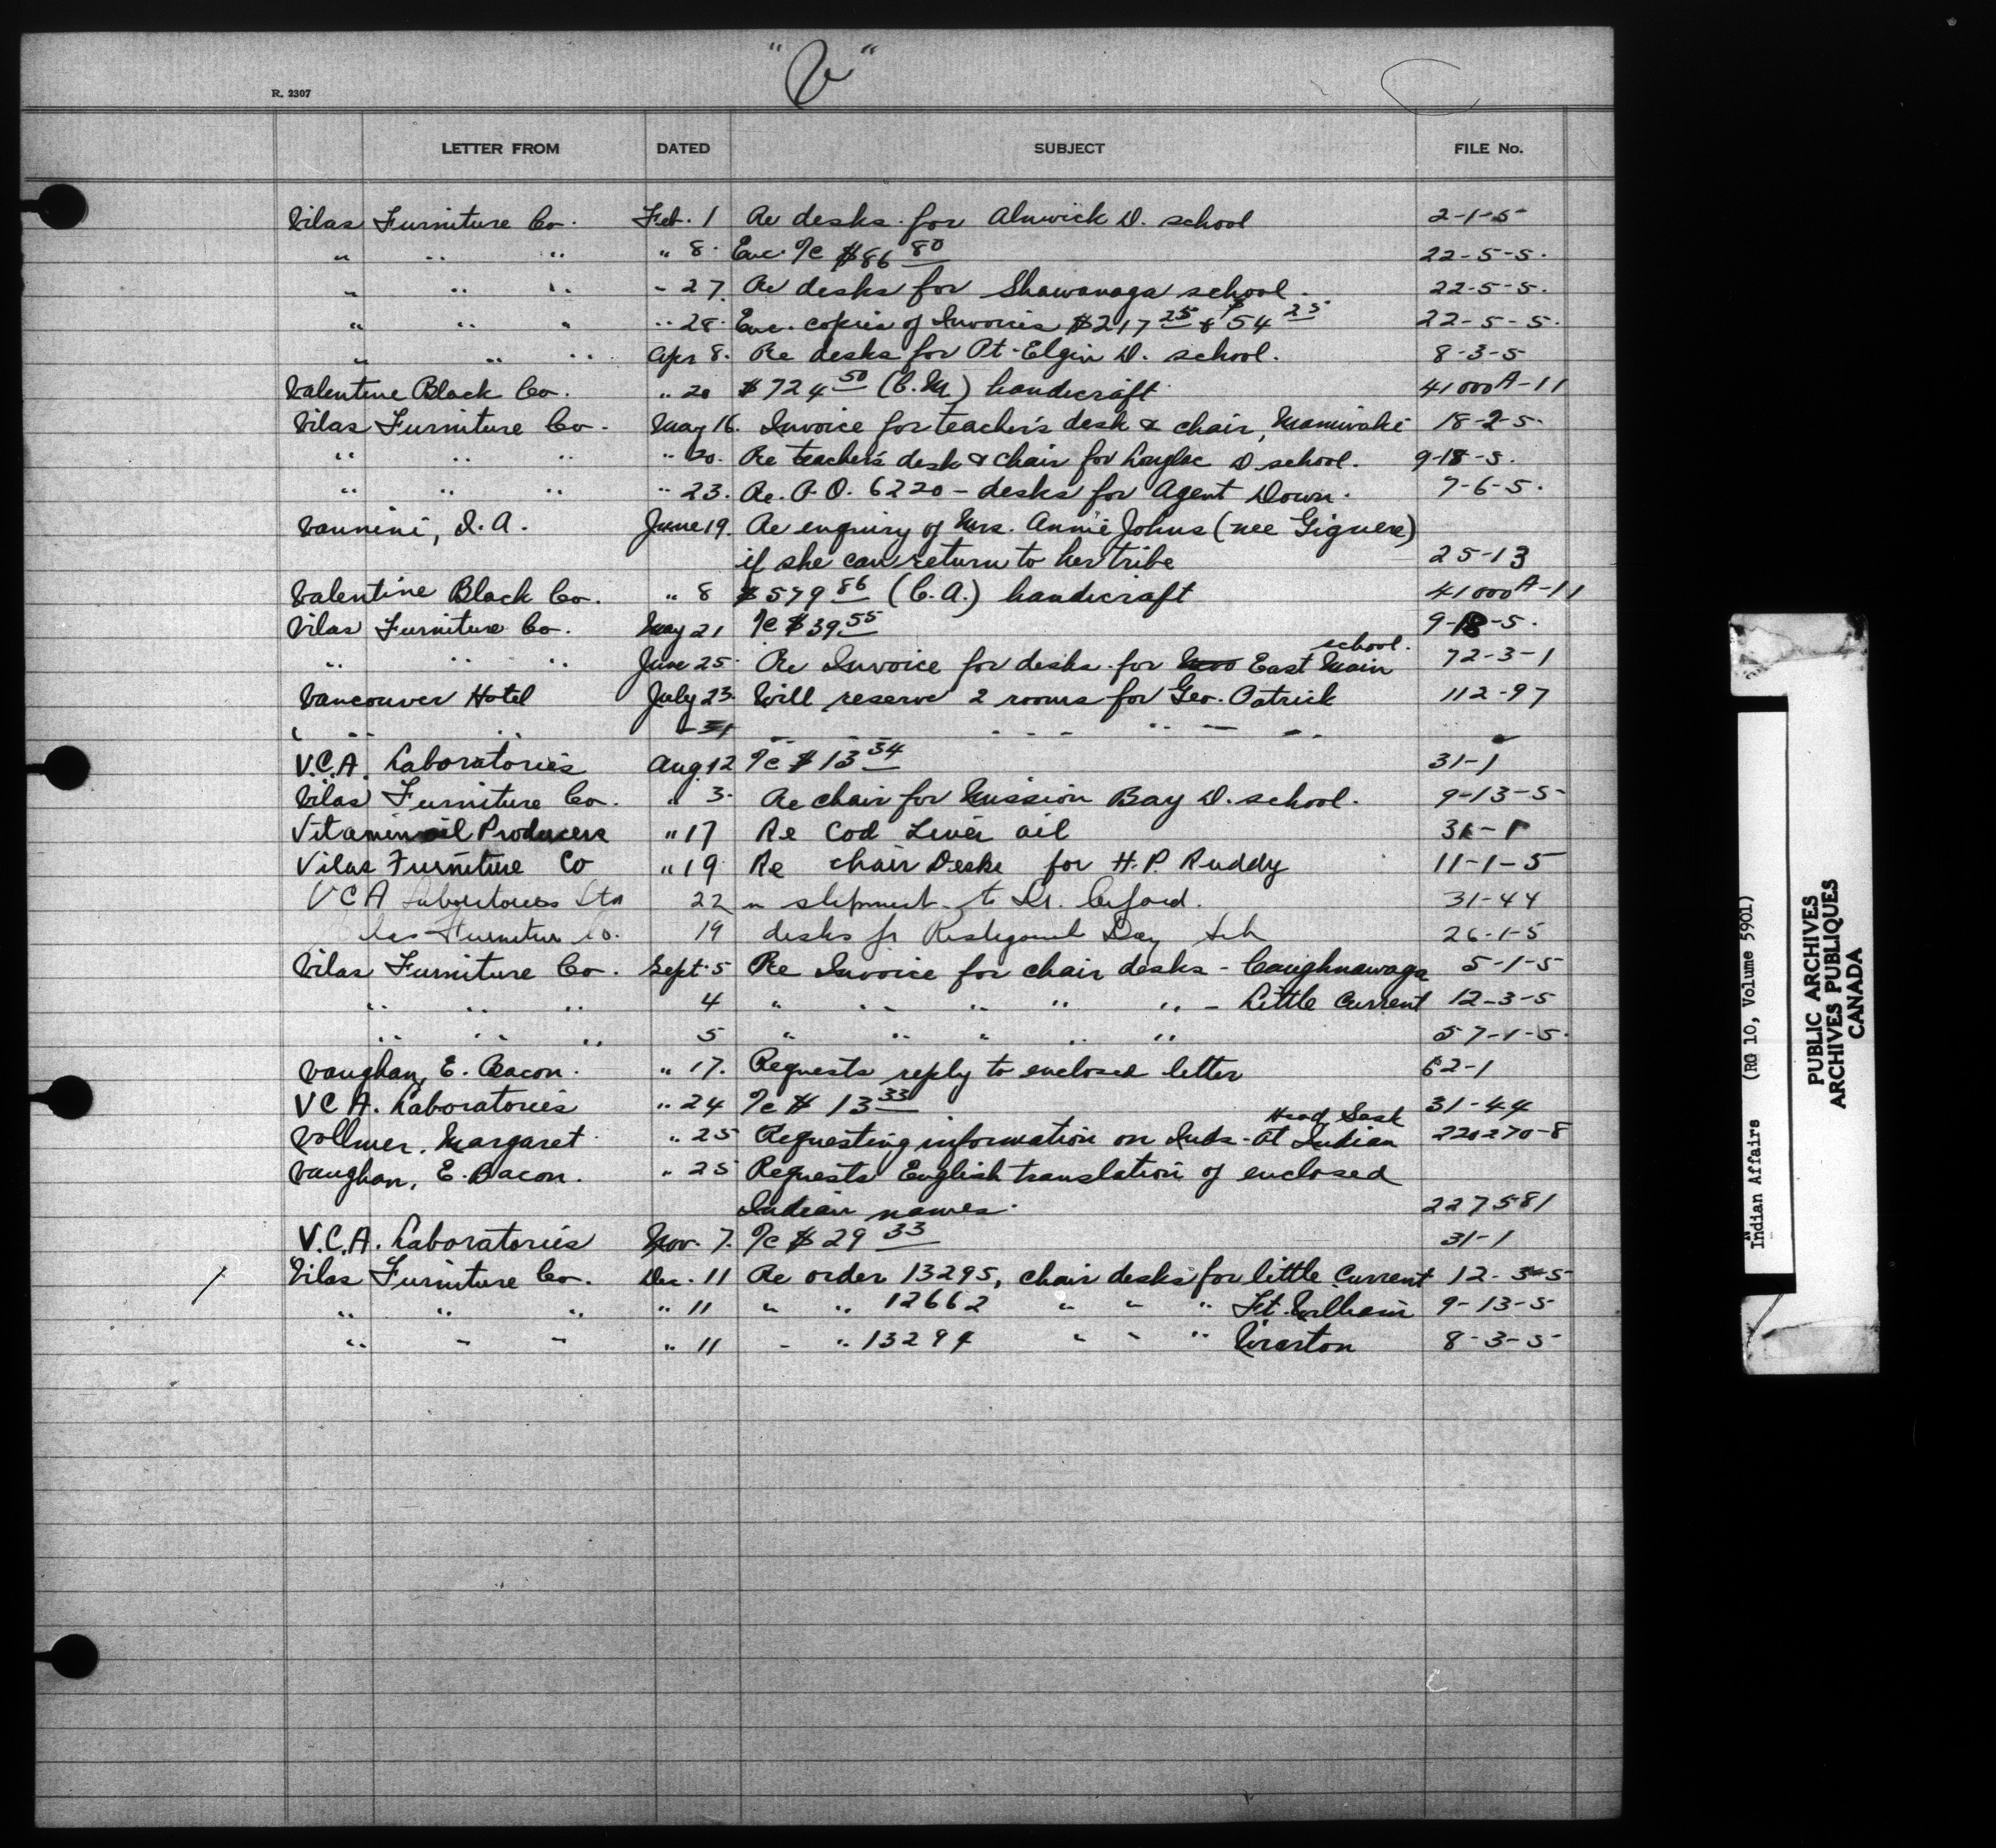 "V"
R. 2307
LETTER FROM DATED SUBJECT FILE No.
Vilas Furniture Co. Feb. 1 Re desks for Alnwick D. school 2-1-5
" " " " 8. Enc. I/C $86 80 22-5-5.
" " " " 27. Re desks for Shawanaga school. 22-5-5.
" " " " 28. Enc. copies of Invoices $217 25 & $54 25 22-5-5.
" " " Apr 8. Re desks for Pt. Elgin D. school. 8-3-5
Valentine Black Co. " 20 $724 50 (C.M.) handicraft 41000A-11
Vilas Furniture Co. May 16. Invoice for teacher's desk & chair, Maniwaki 18-2-5.
" " " " 20. Re teacher's desk & chair for Longlac D school. 9-18-5.
" " " " 23. Re. P.O. 6220 - desks for Agent Down. 7-6-5.
Vannini, I. A. June 19. Re enquiry of Mrs. Annie Johns (nee Giguere)
if she can return to her tribe 25-13
Valentine Black Co. " 8 $579 86 (C.A.) handicraft 41000A-11
Vilas Furniture Co. May 21 I/C $39 55 9-18-5.
" " " June 25. Re Invoice for desks for East Main school. 72-3-1
Vancouver Hotel July 23. Will reserve 2 rooms for Geo. Patrick 112-97
" " " - 31 " " " " "
V.C.A. Laboratories Aug. 12 I/C $13 34 31-1
Vilas Furniture Co. " 3. Re chair for Mission Bay D. school. 9-13-5
Vitamin oil Producers " 17 Re Cod Liver oil 31-1
Vilas Furniture Co " 19 Re chair Desks for H. P. Ruddy 11-1-5
V C A Laboratories Ltd 22 shipment to Dr. 31-44
Vilas Furniture Co. 19 desks fr Restigouche Day Sch 26-1-5
Vilas Furniture Co. Sept. 5 Re Invoice for chair desks - Caughnawaga 5-1-5
" " " 4 " " " " " - Little Current 12-3-5
" " " 5 " " " " " 57-1-5.
Vaughan, E. Bacon. " 17. Requests reply to enclosed letter 62-1
V C A. Laboratories " 24 I/C $ 13 33 31-44
Vollmer, Margaret " 25 Requesting information on Inds - at Indian Head, Sask 220270-8
Vaughan, E. Bacon. " 25 Requests English translation of enclosed
Indian names. 227581
V.C.A. Laboratories Nov. 7. I/C $29 33 31-1
Vilas Furniture Co. Dec. 11 Re order 13295, chair desks for little Current 12-3-5
" " " " 11 " " 12662 " " " Ft. William 9-13-5
" " " " 11 " " 13294 " " " Wiarton 8-3-5
Indian Affairs (RG 10, Volume 5901)
PUBLIC ARCHIVES
ARCHIVES PUBLIQUES
CANADA